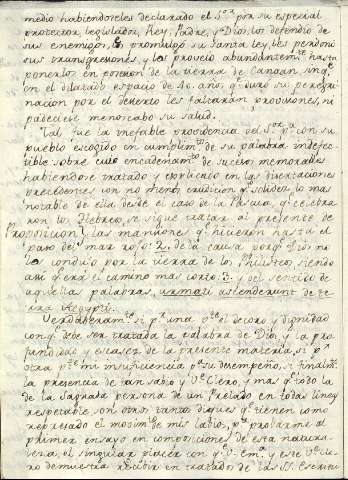 medio habiendoseles declarado el S.or por su especial
protector, legislador, Rey, Padre, y Dios, los defendio de
sus enemigos, promulgó su Santa ley, les perdonó
sus transgresiones, y les proveio abundantem.te hasta
ponerlos en posesion de la tierra de Canaan sin q.e
en el dilatado espacio de 40. años q.e duró su peregri
nacion por el desierto les faltaran provisiones, ni
padeciese menoscabo su salud.
Tal fue la inefable providencia del S.or p.a con su
pueblo escogido en cumplim.to de su palabra indefec
tible sobre cuio encadenam.to de sucesos memorables
habiendose tratado y explicado en las disertaciones
precedentes con no menos erudicion q.e solidez lo mas
notable de ella desde el caso de la Pascua, q.e celebra
ron los Hebreos, se sigue tratar al presente de
Proposicion 1. las mansiones q.e hicieron hasta el
paso del mar roxo: 2. de la causa porq.e Dios no
los conduxo por la tierra de los Philisteos, siendo
asi q.e era el camino mas corto: 3. del sentido de
aquellas palabras, armati ascenderunt de te
rra Aegypti.
Verdaderam.te si p.r una p.te el decoro, y dignidad
con q.e debe ser tratada la palabra de Dios, y la pro
fundidad y escasez de la presente materia, si p.r
otra p.te mi insuficiencia p.a su desempeño, si finalm.te
la presencia de tan sabio y V.e Clero, y mas q.e todo la
de la Sagrada persona de un Prelado en todas lineas
respetable, son otros tantos diques q.e tienen como
represado el movim.to de mis labios, p.a probarme al
primer ensayo en composiciones de esta natura
leza, el singular placer con q.e V. Em.a y este V.e Cle
ro demuestra recibir en tratados de las SS. Escritu